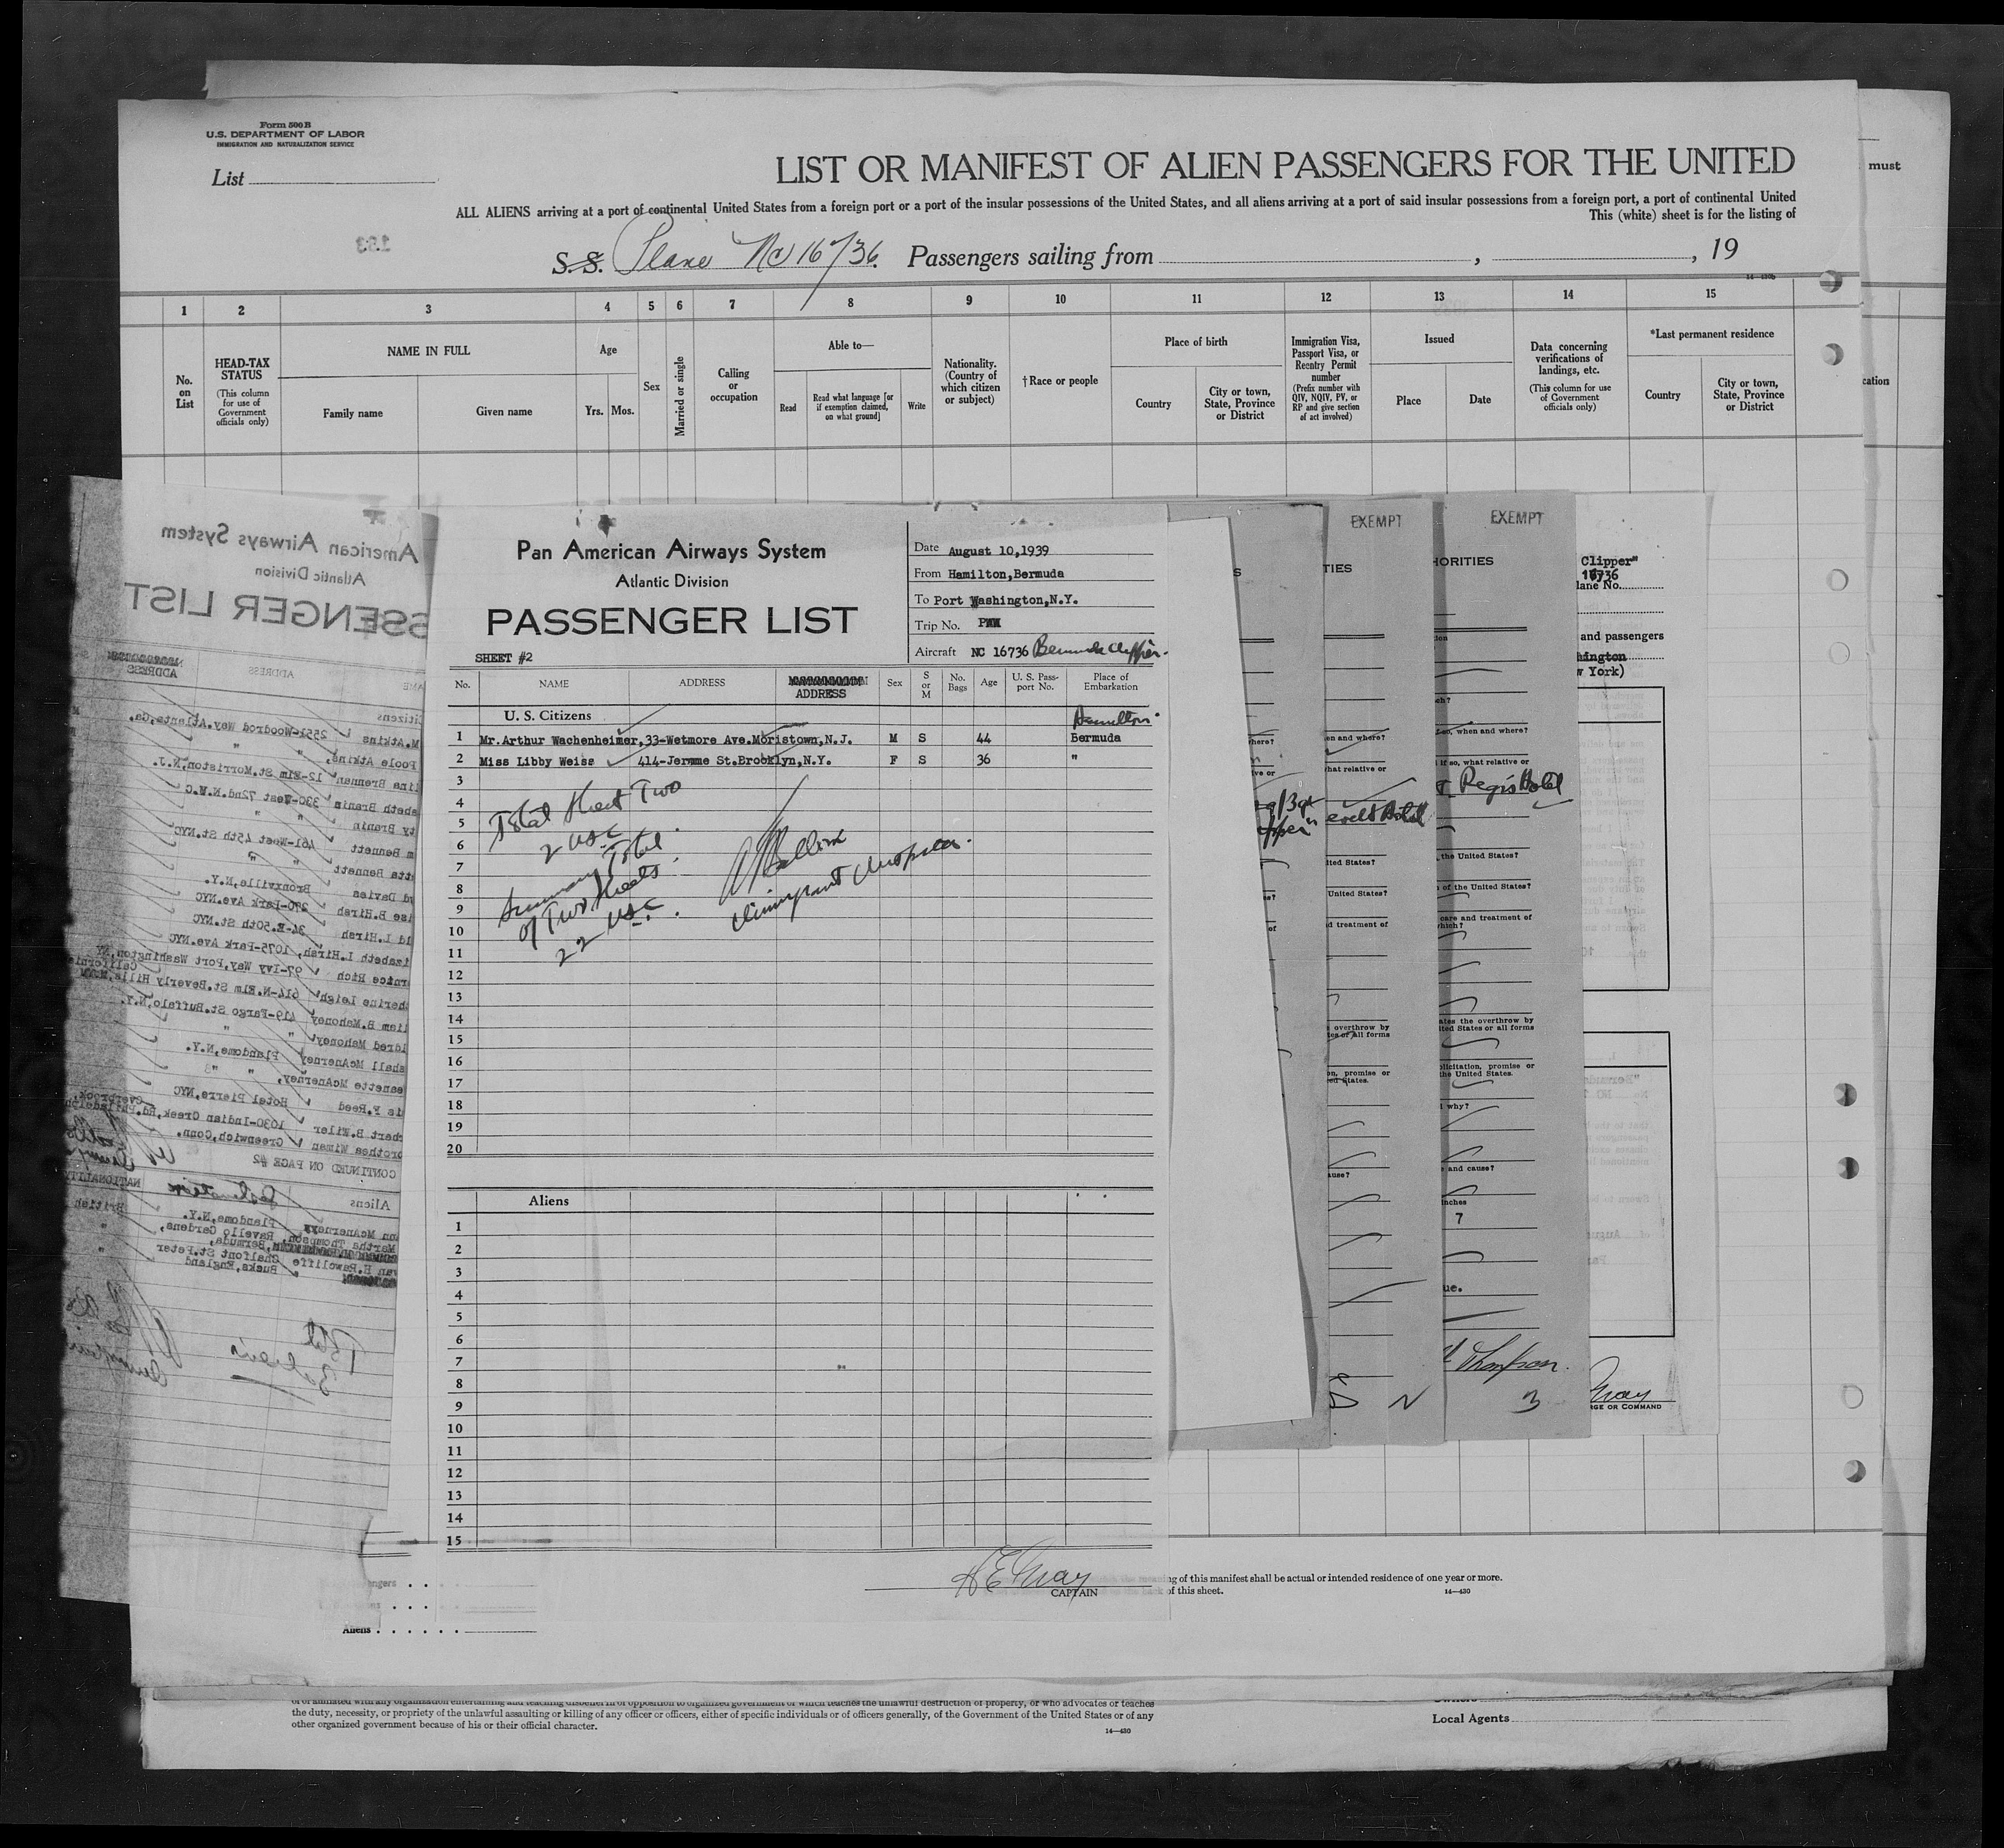 Form 500 B
U.S. DEPARTMENT OF LABOR
IMMIGRATION AND NATURALIZATION SERVICE
List
LIST OR MANIFEST OF ALIEN PASSENGERS FOR THE UNITED
must
ALL ALIENS arriving at a port of continental United States from a foreign port or a port of the insular possessions of the United States, and all aliens arriving at a port of said insular possessions from a foreign port, a port of continental United
This (white) sheet is for the listing of
183
S.S. Plane NC 16736 Passengers sailing from , , 19
14—430b
1 2 3 4 5 6 7 8 9 10 11 12 13 14 15
No. on List
HEAD-TAX STATUS
(This column for use of Government officials only)
NAME IN FULL
Family name
Given name
Age
Yrs. Mos.
Sex
Married or single
Calling or occupation
Able to—
Read
Read what language [or if exemption claimed, on what ground]
Write
Nationality. (Country of which citizen or subject)
†Race or people
Place of birth
Country
City or town, State, Province or District
Immigration Visa, Passport Visa, or Reentry Permit number
(Prefix number with QIV, NQIV, PV, or RP and give section of act involved)
Issued
Place
Date
Data concerning verifications of landings, etc.
(This column for use of Government officials only)
*Last permanent residence
Country
City or town, State, Province or District
cation
American Airways System
Atlantic Division
SSENGER LIST
ADDRESS
ADDRESS
AME
Citizens
M.Atkins 2551-Woodrod Way.Atlanta,Ga.
Poole Atkins, " "
lina Brennan 12-Elm St.Morriston,N.J.
abeth Branin 330-West 72nd.N.Y.C
ty Branin " "
m Bennett 461-West 45th St.NYC
tta Bennett " "
rd Davies Bronxville,N.Y.
ise B.Hirsh 270-Park Ave.NYC
id L.Hirsh 34-E.50th St.NYC
izabeth L.Hirsh, 1075-Park Ave.NYC
rnice Rich 97-Ivy Way,Port Washington,NY
California
herine Leigh 614-N.Elm St.Beverly Hills,
liam B.Mahoney 419-Fargo St.Buffalo,N.Y.
ldred Mahoney " "
shall McAnerney Plandome,N.Y.
eanette McAnerney, " "
is F.Reed Hotel Pierre,NYC
Overbrook,
bert B.Wiler 1030-Indian Creek,Rd.Philadelph
orothea Wiman Greenwich,Conn.
CONTINUED ON PAGE #2
NATIONALITY
Aliens Destination
nn McAnerney Plandome,N.Y. British
Martha Thompson, Ravello Gardens, "
Bermuda,
van H.Rawcliffe Chalfont St.Peter "
Bucks,England
Total
3 aliens
Pan American Airways System
Atlantic Division
PASSENGER LIST
SHEET #2
Date August 10,1939
From Hamilton,Bermuda
To Port Washington,N.Y.
Trip No.
Aircraft NC 16736 Bermuda Clipper.
No. NAME ADDRESS ADDRESS Sex S or M No. Bags Age U. S. Pass-port No. Place of Embarkation
U. S. Citizens Hamilton
1 Mr.Arthur Wachenheimer,33-Wetmore Ave.Moristown,N.J. M S 44 Bermuda
2 Miss Libby Weiss 414-Jerome St.Brooklyn,N.Y. F S 36 "
3
4
5
6
7
8
9
10
11
12
13
14
15
16
17
18
19
20
Total Sheet Two
2 USC
Summary Total
of Two Sheets
22 USC
Immigrant Inspector.
Aliens
1
2
3
4
5
6
7
8
9
10
11
12
13
14
15
H E Gray
CAPTAIN
engers . .
Aliens . . . . . .
S
here?
EXEMPT
TIES
en and where?
hat relative or
evelt Hotel
ited States?
United States?
d treatment of
overthrow by
tes or all forms
en, promise or
ed States.
ause?
N
EXEMPT
HORITIES
so, when and where?
if so, what relative or
Regis Hotel
the United States?
of the United States?
care and treatment of
which?
ates the overthrow by
ited States or all forms
olicitation, promise or
the United States.
why?
e and cause?
inches
7
ue.
Thompson.
3
Clipper"
16736
lane No.
and passengers
hington
w York)
Gray
RGE OR COMMAND
ng of this manifest shall be actual or intended residence of one year or more.
of this sheet.
14—430
or or affiliated with any organization entertaining and teaching disbelief in or opposition to organized government or which teaches the unlawful destruction of property, or who advocates or teaches
the duty, necessity, or propriety of the unlawful assaulting or killing of any officer or officers, either of specific individuals or of officers generally, of the Government of the United States or of any
other organized government because of his or their official character.
14—430
Owners
Local Agents